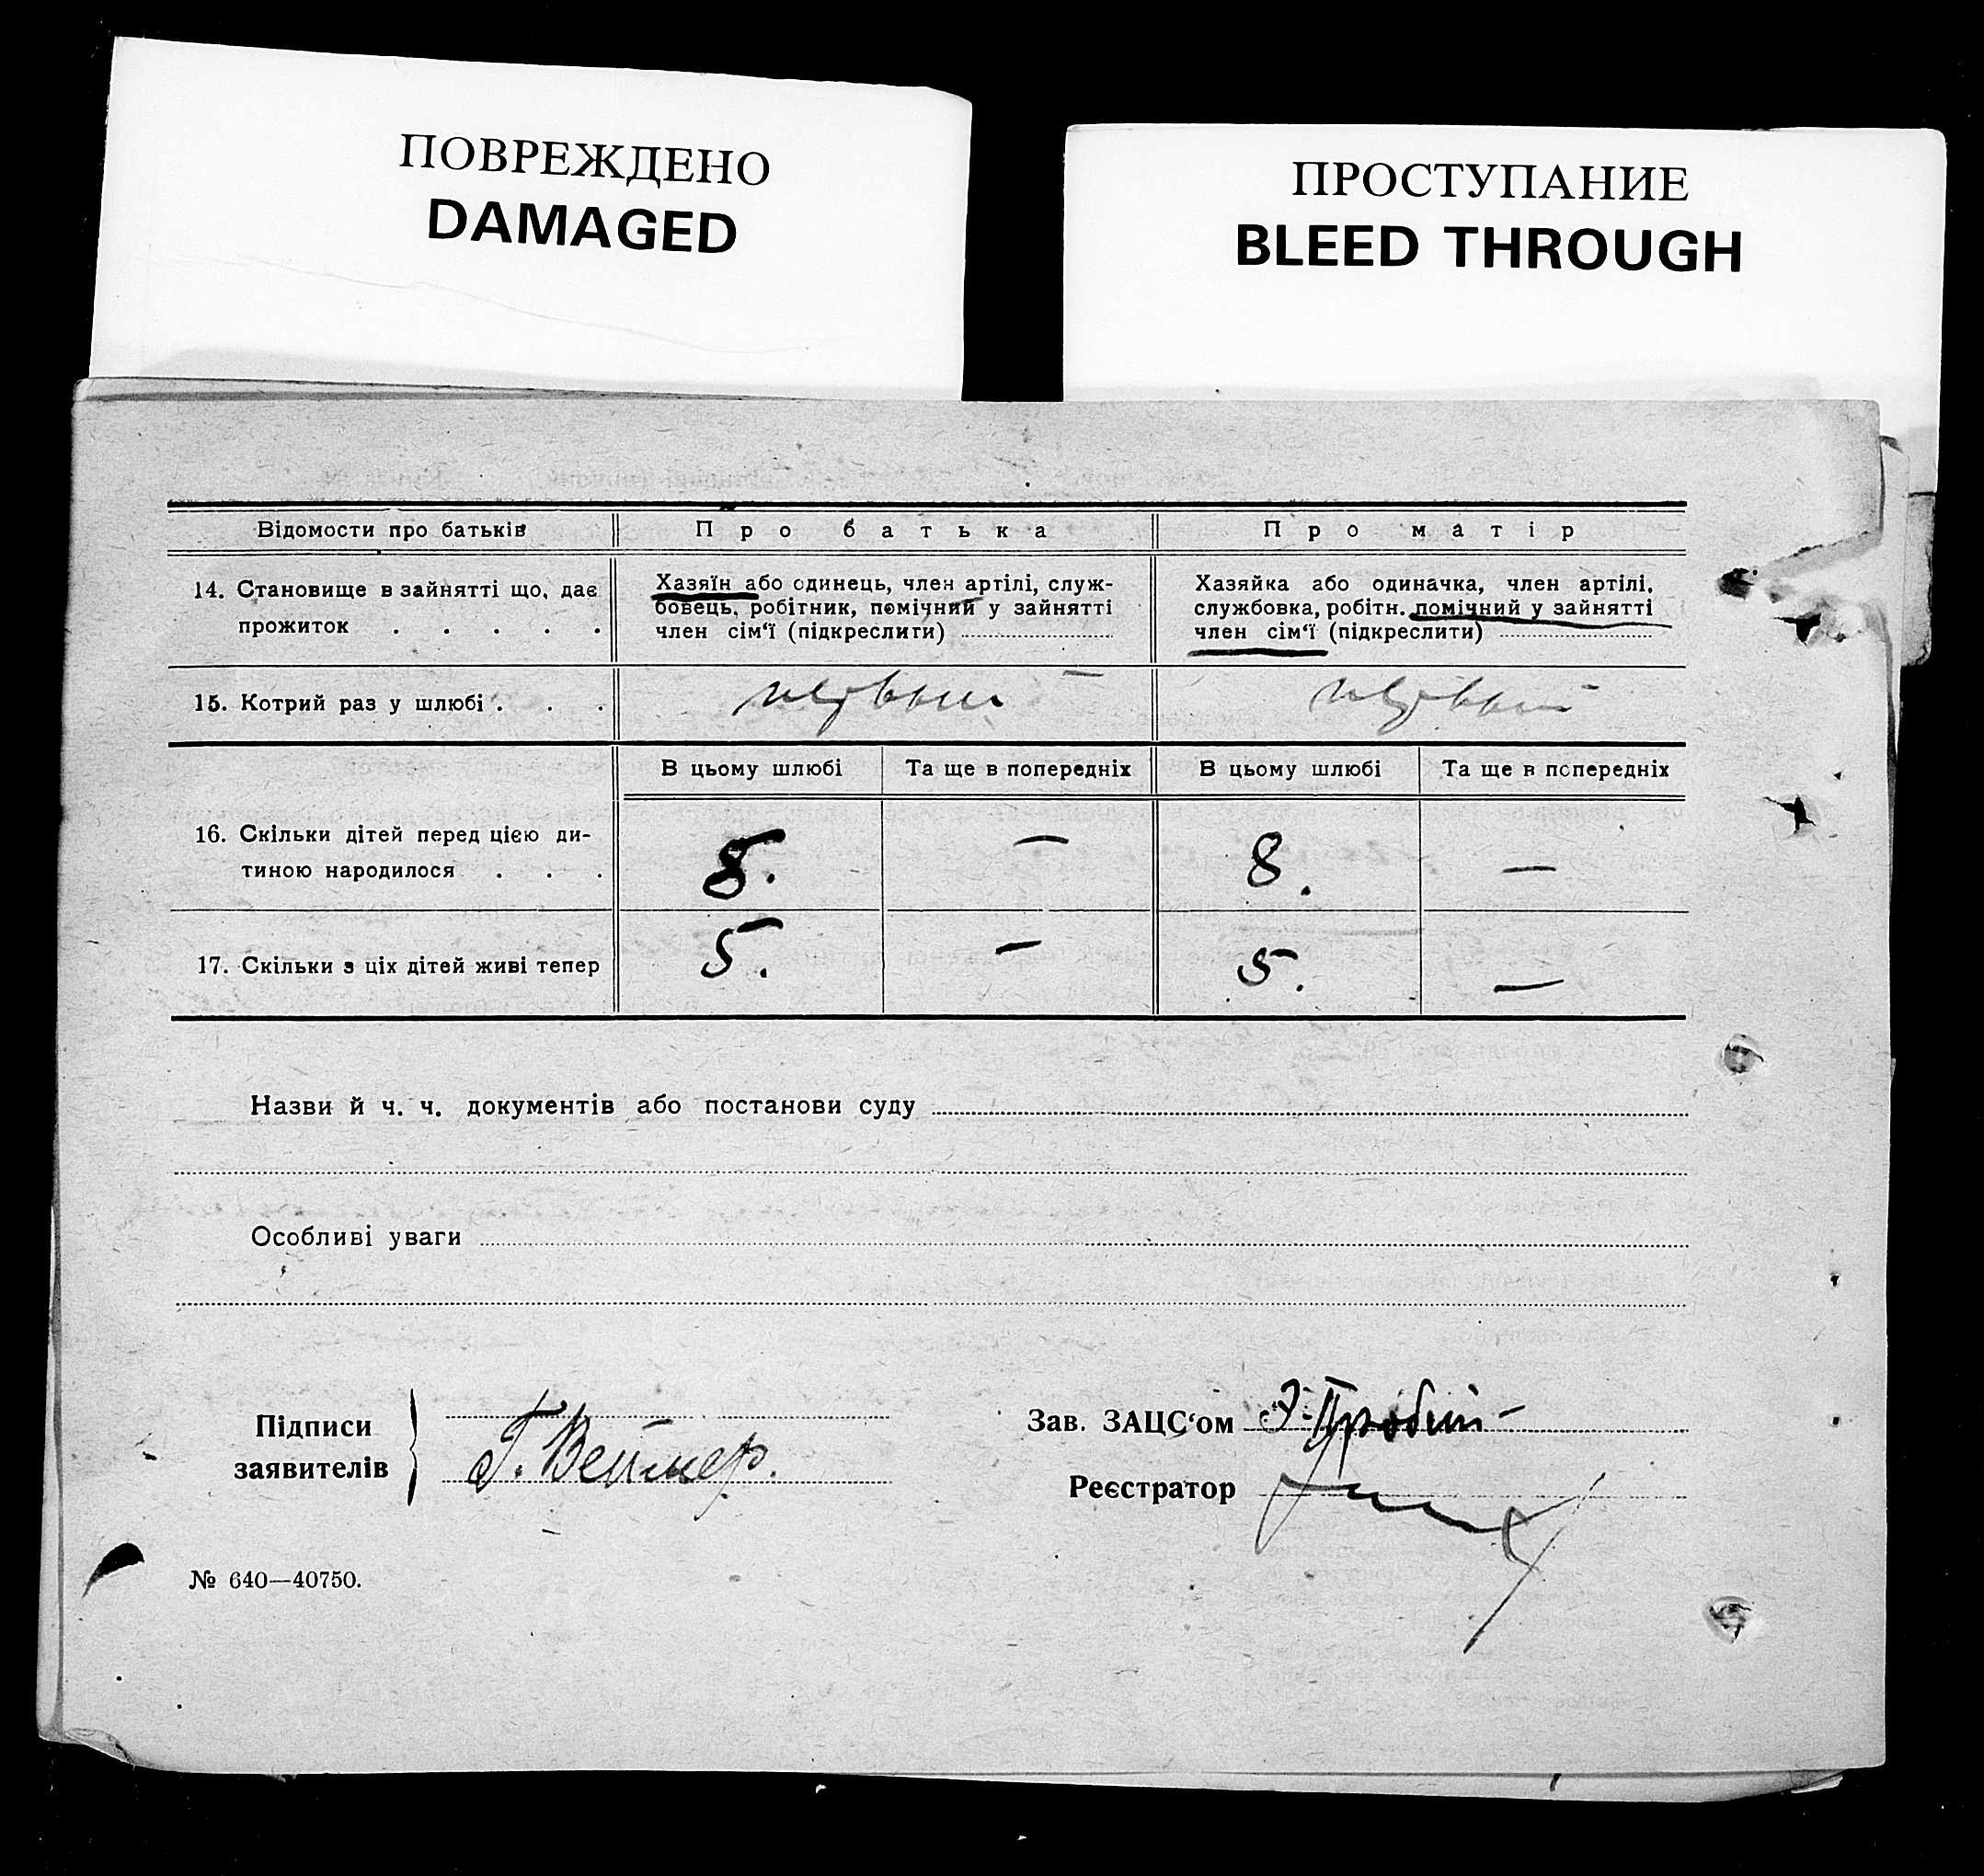 ПОВРЕЖДЕНО
DAMAGED
ПРОСТУПАНИЕ
BLEED THROUGH
Відомости про батьків
Про батька
Про матір
14. Становище в зайнятті що, дає
прожиток . . . . .
Хазяїн або одинець, член артілі, служ-
бовець, робітник, помічний у зайнятті
член сім'ї (підкреслити)
Хазяйка або одиначка, член артілі,
службовка, робітн. помічний у зайнятті
член сім'ї (підкреслити)
15. Котрий раз у шлюбі . . .
первый
первый
В цьому шлюбі
Та ще в попередніх
В цьому шлюбі
Та ще в попередніх
16. Скільки дітей перед цією ди-
тиною народилося . . .
8. — 8. —
17. Скільки з ціх дітей живі тепер
5. — 5. —
Назви й ч. ч. документів або постанови суду
Особливі уваги
Підписи
заявителів
Г. Веймер.
Зав. ЗАЦС'ом
Реєстратор
№ 640—40750.